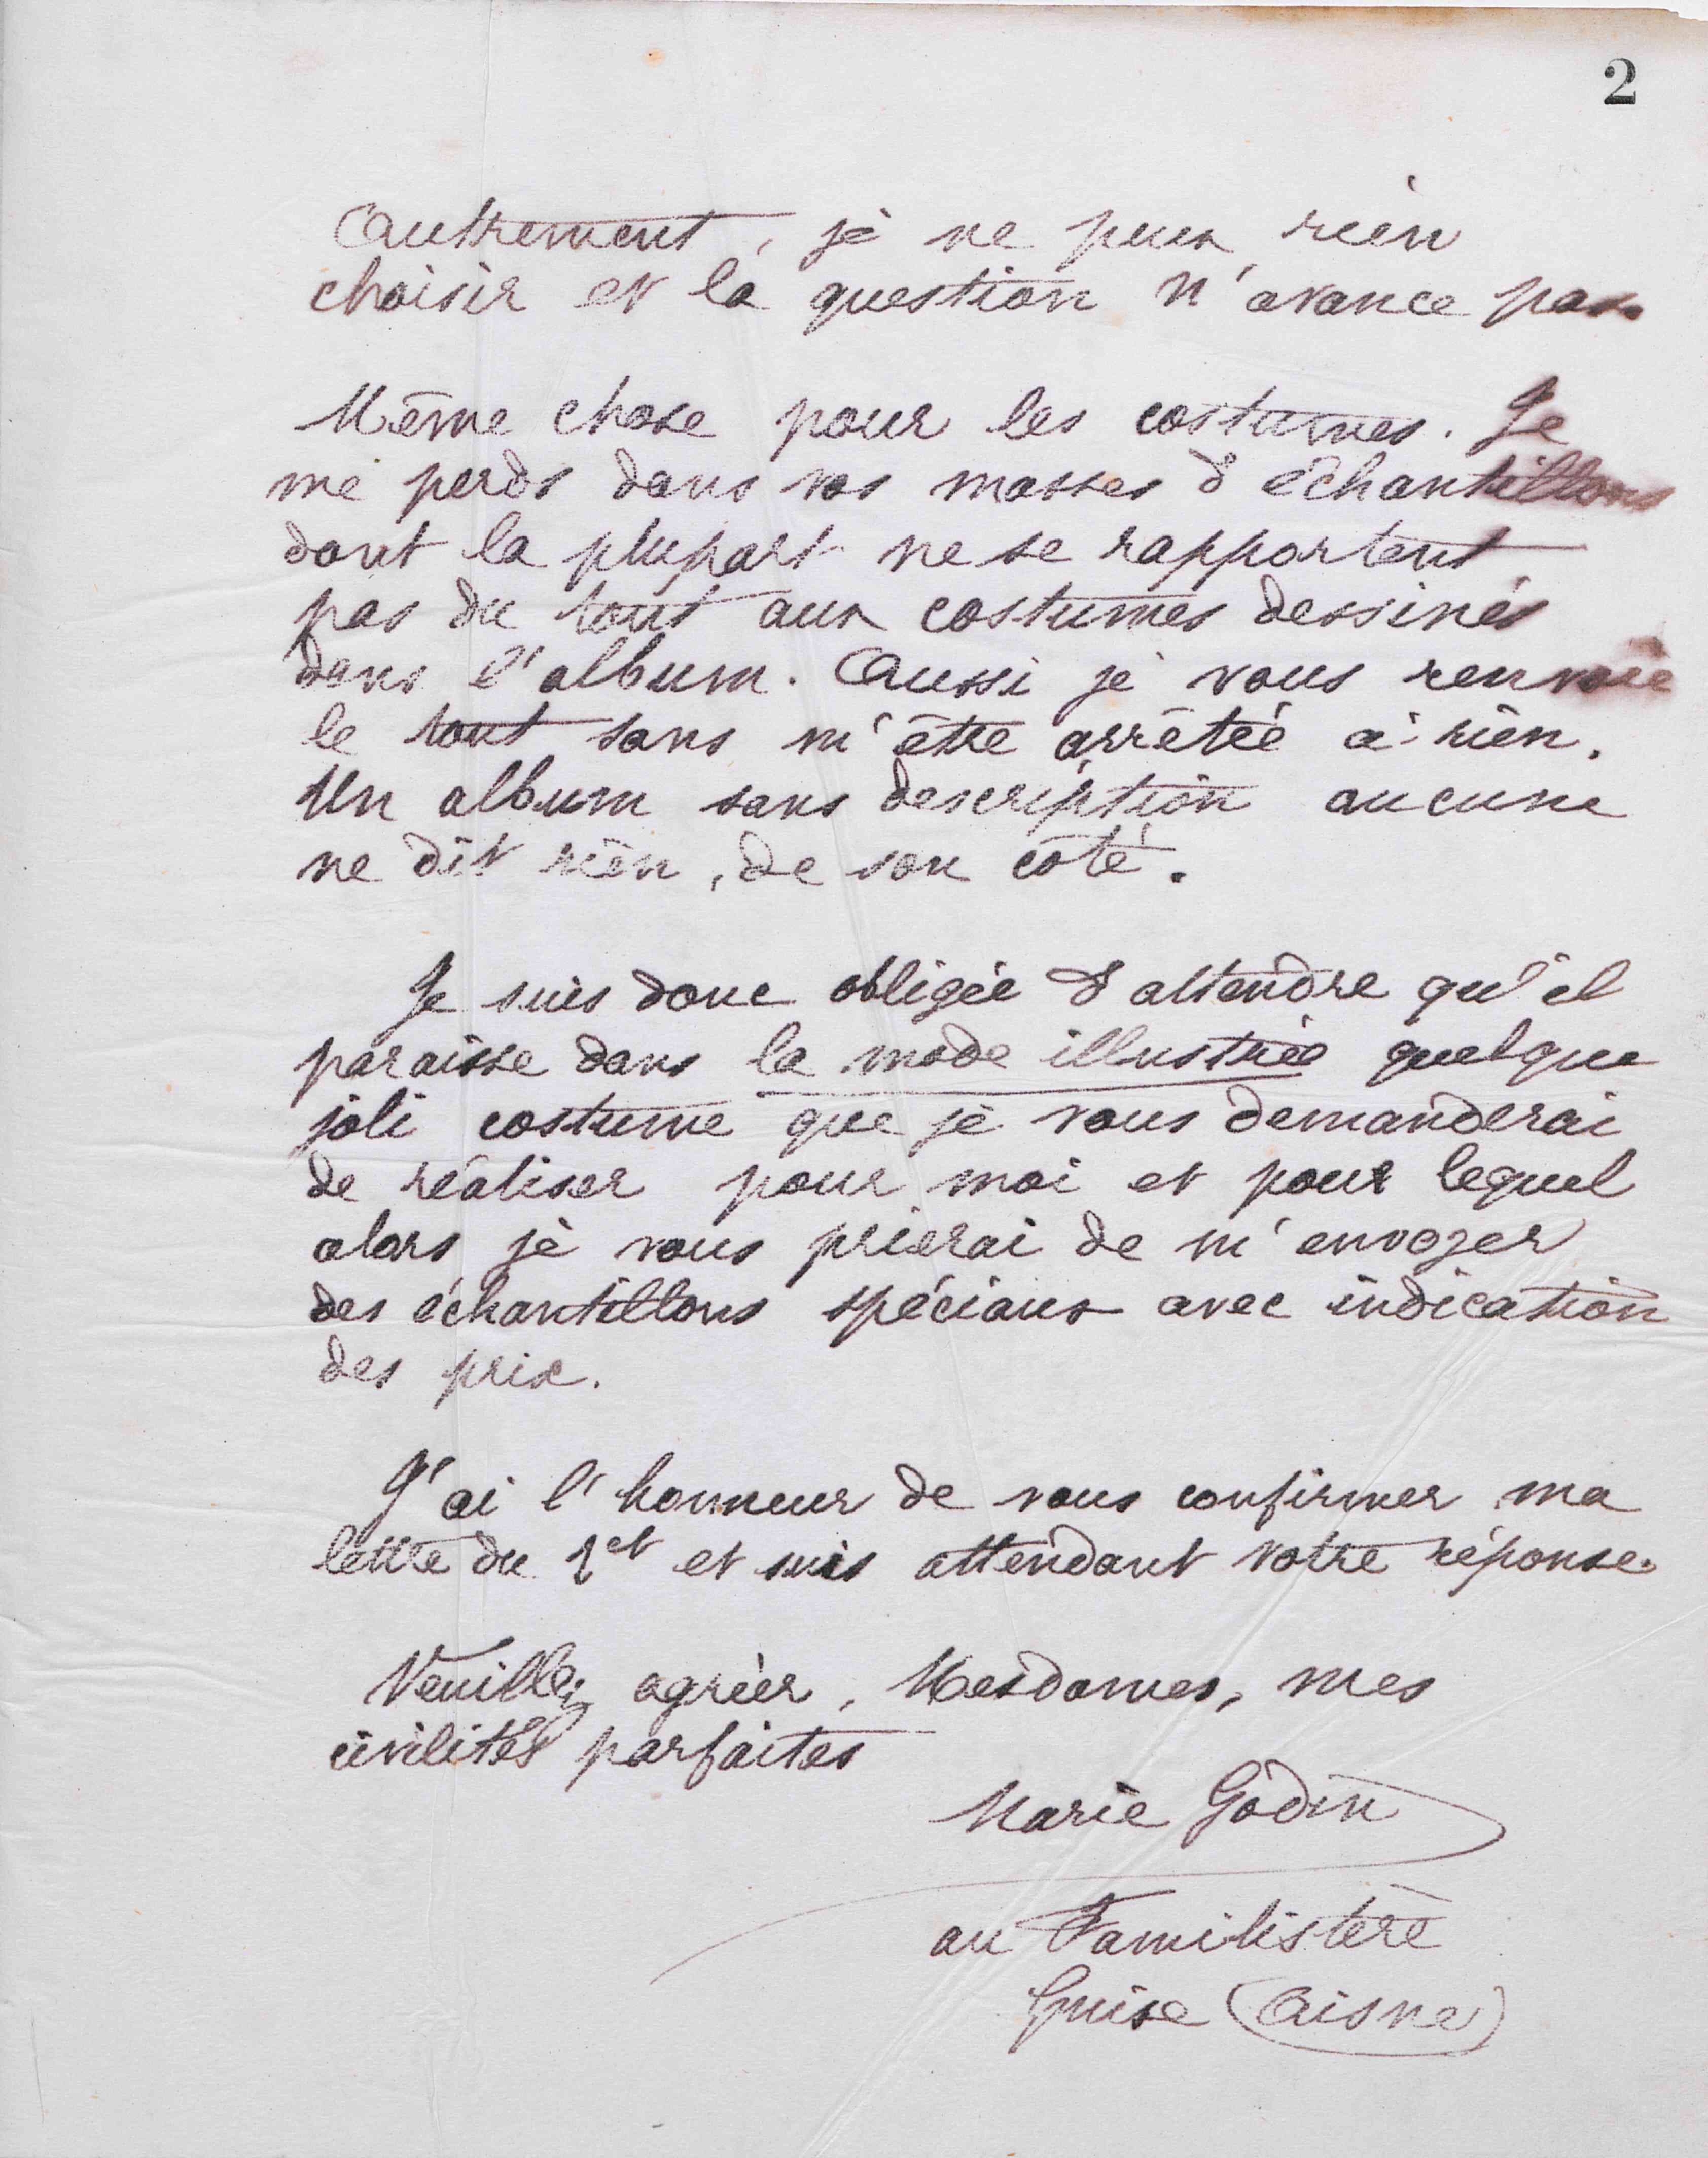 2
Autrement, je ne peux rien
choisir et la question n'avance pas.
Même chose pour les costumes. Je
me perds dans vos masses d'échantillons
dont la plupart ne se rapportent
pas du tout aux costumes dessinés
dans l'album. Aussi je vous renvoie
le tout sans m'être arrêtée à rien.
Un album sans description aucune
ne dit rien, de son côté.
Je suis donc obligée d'attendre qu'il
paraisse dans la mode illustrée quelque
joli costume que je vous demanderai
de réaliser pour moi et pour lequel
alors je vous prierai de m'envoyer
des échantillons spéciaux avec indication
des prix.
J'ai l'honneur de vous confirmer ma
lettre du 1er et suis attendant votre réponse.
Veuillez agréer, Mesdames, mes
civilités parfaites
Marie Godin
au Familistère
Guise (Aisne)